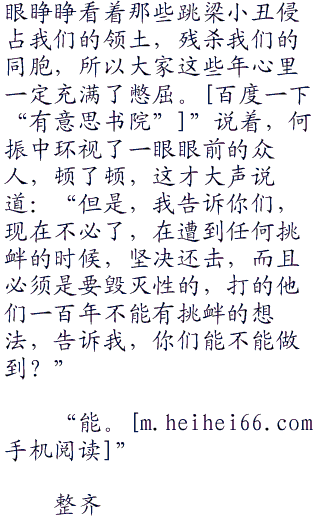 眼睁睁看着那些跳梁小丑侵
占我们的领土，残杀我们的
同胞，所以大家这些年心里
一定充满了憋屈。[百度一下
“有意思书院”]”说着，何
振中环视了一眼眼前的众
人，顿了顿，这才大声说
道：“但是，我告诉你们，
现在不必了，在遭到任何挑
衅的时候，坚决还击，而且
必须是要毁灭性的，打的他
们一百年不能有挑衅的想
法，告诉我，你们能不能做
到？”
“能。[m.heihei66.com
手机阅读]”
整齐